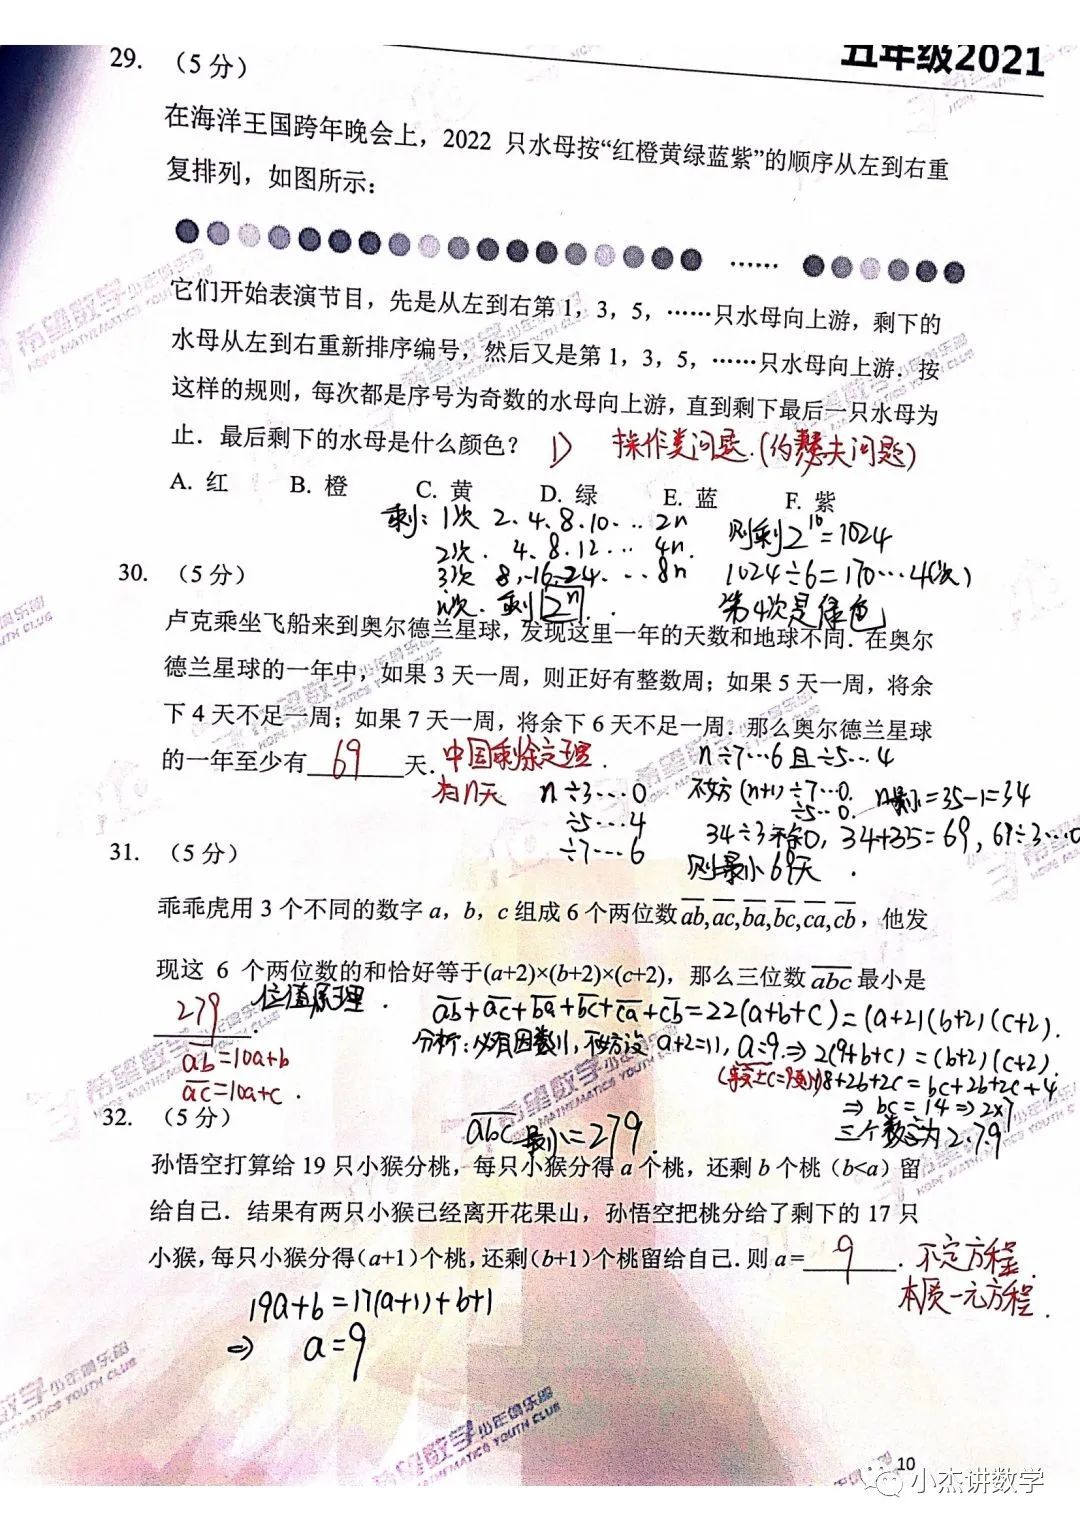 五年级2021
29. （5 分）
在海洋王国跨年晚会上，2022 只水母按“红橙黄绿蓝紫”的顺序从左到右重
复排列，如图所示：
……
它们开始表演节目，先是从左到右第 1，3，5，……只水母向上游，剩下的
水母从左到右重新排序编号，然后又是第 1，3，5，……只水母向上游．按
这样的规则，每次都是序号为奇数的水母向上游，直到剩下最后一只水母为
止．最后剩下的水母是什么颜色？ D 操作类问题.(约瑟夫问题)
A. 红 B. 橙 C. 黄 D. 绿 E. 蓝 F. 紫
剩：1次 2、4、8、10、… 2n 则剩2^10=1024
2次. 4、8、12… 4n.
3次 8、16、24、…8n 1024÷6=170…4(次)
n次. 剩2^n. 第4次是绿色
30. （5 分）
卢克乘坐飞船来到奥尔德兰星球，发现这里一年的天数和地球不同．在奥尔
德兰星球的一年中，如果 3 天一周，则正好有整数周；如果 5 天一周，将余
下 4 天不足一周；如果 7 天一周，将余下 6 天不足一周．那么奥尔德兰星球
的一年至少有 69 天. 中国剩余定理. n÷7…6且÷5…4
为n天 n÷3…0 不妨(n+1)÷7…0. n最小=35-1=34
÷5…4 ÷5…0.
÷7…6 34÷3不余0, 34+35=69, 69÷3…0
则最小69天.
31. （5 分）
乖乖虎用 3 个不同的数字 a，b，c 组成 6 个两位数 ab,ac,ba,bc,ca,cb，他发
现这 6 个两位数的和恰好等于(a+2)×(b+2)×(c+2)，那么三位数 abc 最小是
279. 位值原理. ab+ac+ba+bc+ca+cb=22(a+b+c)=(a+2)(b+2)(c+2).
分析：必有因数11, 不妨设 a+2=11, a=9.⇒2(9+b+c)=(b+2)(c+2).
ab=10a+b
18+2b+2c=bc+2b+2c+4
ac=10a+c.
⇒bc=14⇒2×7
三个数字为2.7.9
32. （5 分） abc最小=279.
孙悟空打算给 19 只小猴分桃，每只小猴分得 a 个桃，还剩 b 个桃（b<a）留
给自己．结果有两只小猴已经离开花果山，孙悟空把桃分给了剩下的 17 只
小猴，每只小猴分得(a+1)个桃，还剩(b+1)个桃留给自己．则 a= 9 . 不定方程.
本质一元方程.
19a+b=17(a+1)+b+1
⇒ a=9
10
小杰讲数学